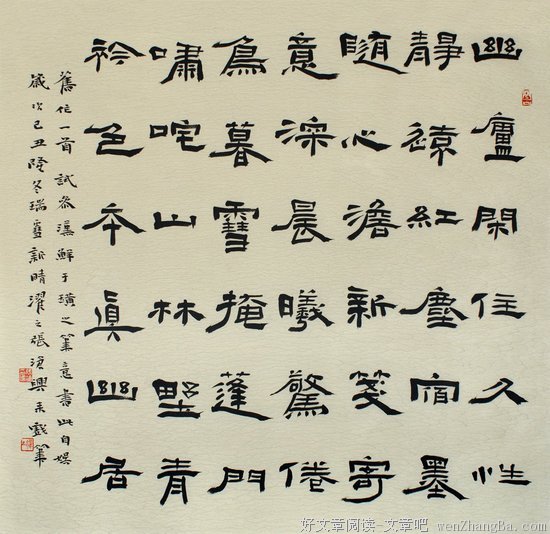 幽廬閑住久性
靜遠紅塵宿墨
随心澹新箋寄
意深晨曦驚倦
鳥暮雪掩蓬門
嘯咤山林野青
衿色本真幽居
舊作一首試參漢鮮于璜之筆意書此自娱
歲次己丑隆冬瑞雪新晴濯之張興來戲筆
好文章阅读-文章吧 wenZhangBa.com